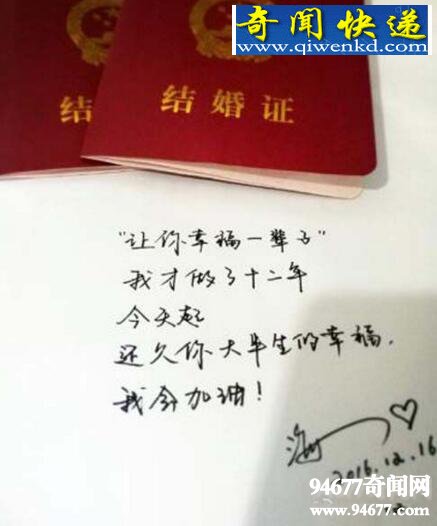 奇闻快递
www.qiwenkd.com
结婚证
结
"让你幸福一辈子"
我才做了十二年
今天起
还欠你大半生的幸福.
我会加油!
海
2016.12.16
94677奇闻网
www.94677.com